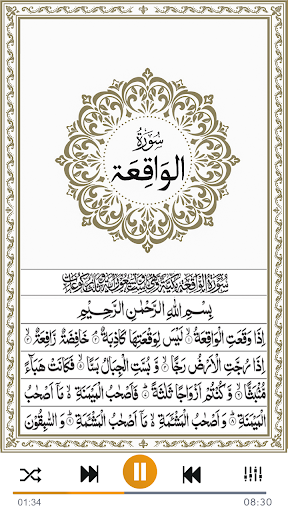 سُوْرَةُ
الوَاقِعَة
سُوْرَةُ الْوَاقِعَةِ مَكِّيَّةٌ وَهِيَ سِتٌّ وَتِسْعُوْنَ اٰيَةً وَّثَلٰثُ رُكُوْعَاتٍ
بِسْمِ اللّٰهِ الرَّحْمٰنِ الرَّحِيْمِ
اِذَا وَقَعَتِ الْوَاقِعَةُ ۙ لَيْسَ لِوَقْعَتِهَا كَاذِبَةٌ ۘ خَافِضَةٌ رَّافِعَةٌ ۙ
اِذَا رُجَّتِ الْاَرْضُ رَجًّا ۙ وَّ بُسَّتِ الْجِبَالُ بَسًّا ۙ فَكَانَتْ هَبَآءً
مُّنْۢبَثًّا ۙ وَّ كُنْتُمْ اَزْوَاجًا ثَلٰثَةً ؕ فَاَصْحٰبُ الْمَيْمَنَةِ ۙ مَاۤ اَصْحٰبُ
الْمَيْمَنَةِ ؕ وَ اَصْحٰبُ الْمَشْـَٔمَةِ ۙ مَاۤ اَصْحٰبُ الْمَشْـَٔمَةِ ؕ وَ السّٰبِقُوْنَ
01:34
08:30